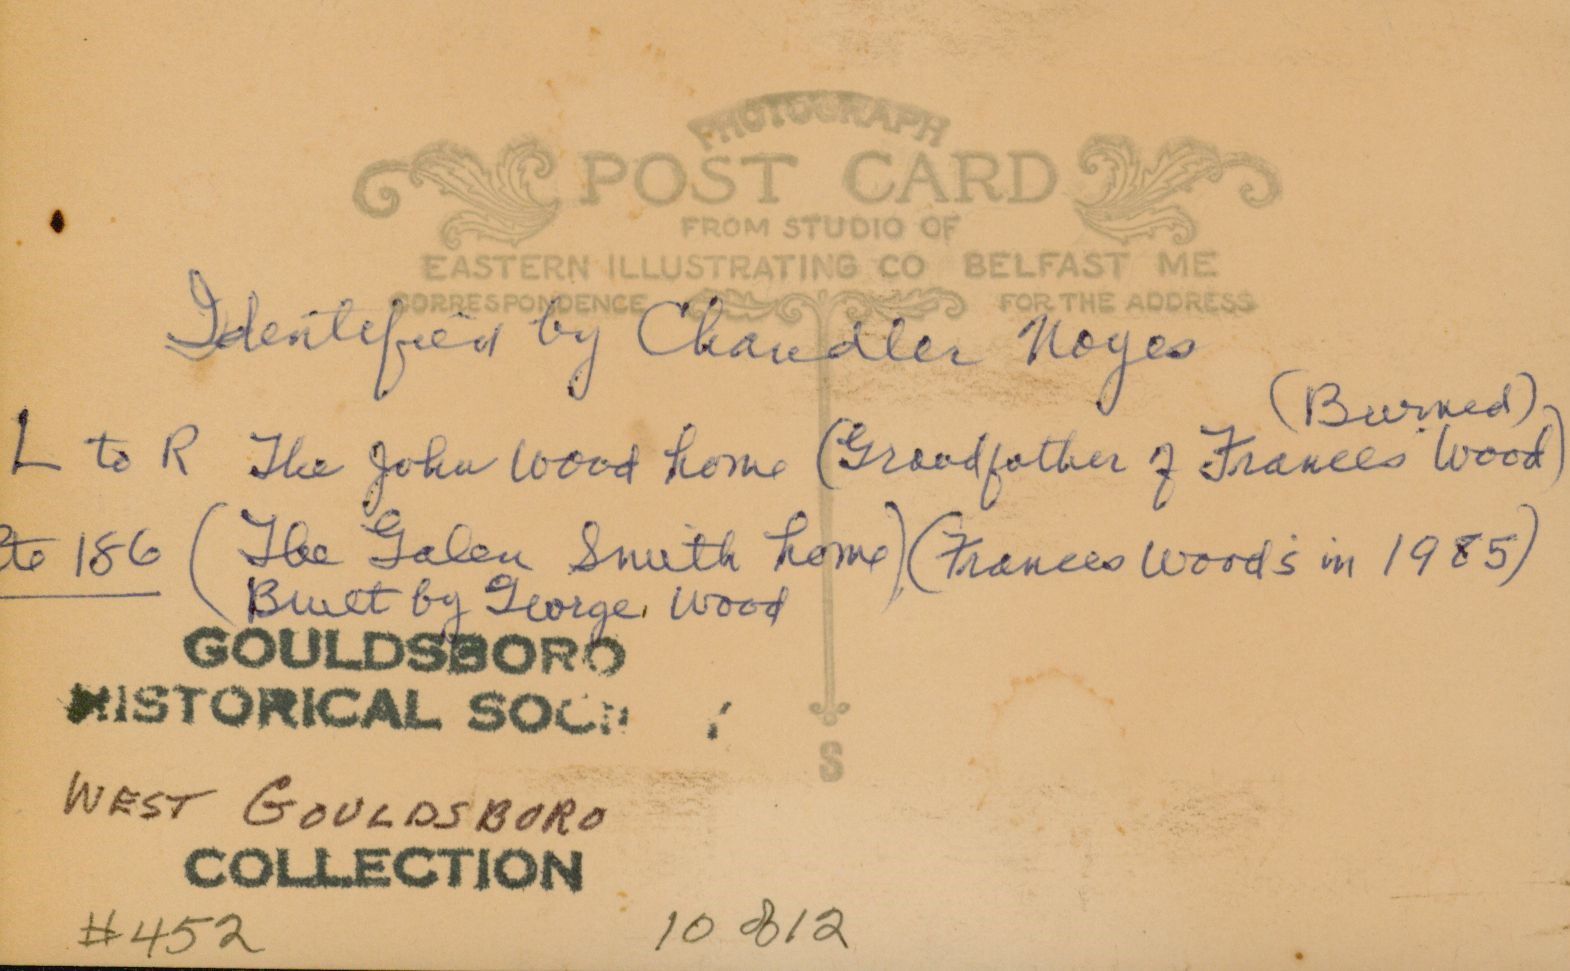 PHOTOGRAPH
POST CARD
FROM STUDIO OF
EASTERN ILLUSTRATING CO BELFAST ME
CORRESPONDENCE FOR THE ADDRESS
Identified by Chandler Noyes
(Burned)
L to R The John Wood home (Grandfather of Frances Wood)
186 (The Galen Smith home) (Frances Wood's in 1985)
Built by George Wood
GOULDSBORO
HISTORICAL
S
WEST GOULDSBORO
COLLECTION
#452 10 of 12